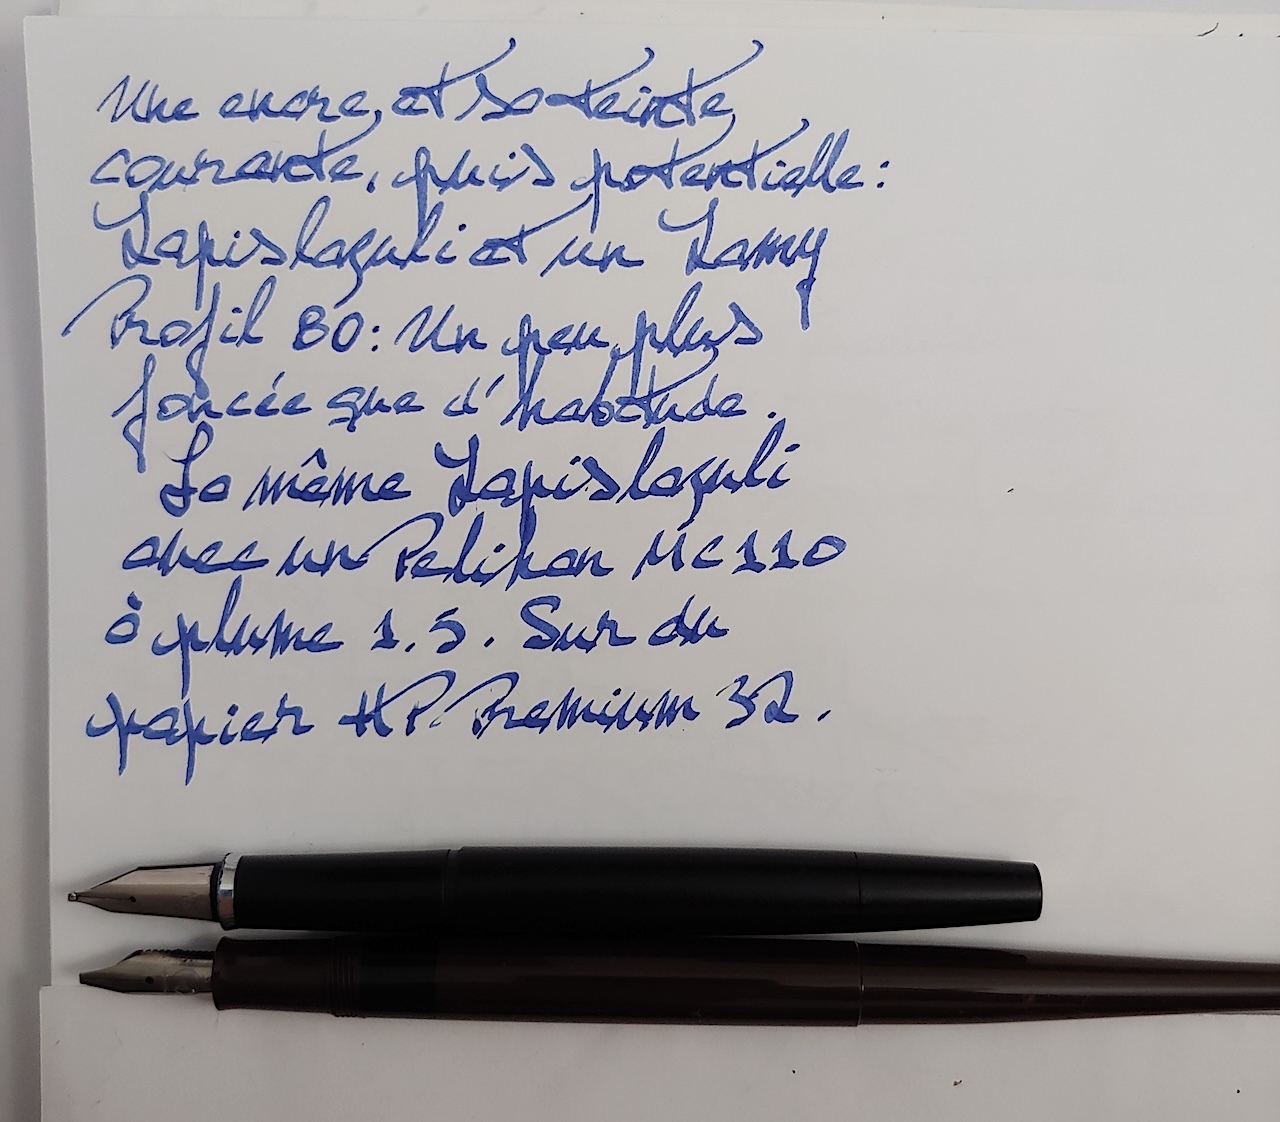 Une encre, et sa teinte
courante, puis potentielle:
Lapislazuli et un Lamy
Profil 80: Un peu plus
foncée que d'habitude.
La même Lapislazuli
avec un Pelikan MC110
à plume 1.5. Sur du
papier HP Premium 32.